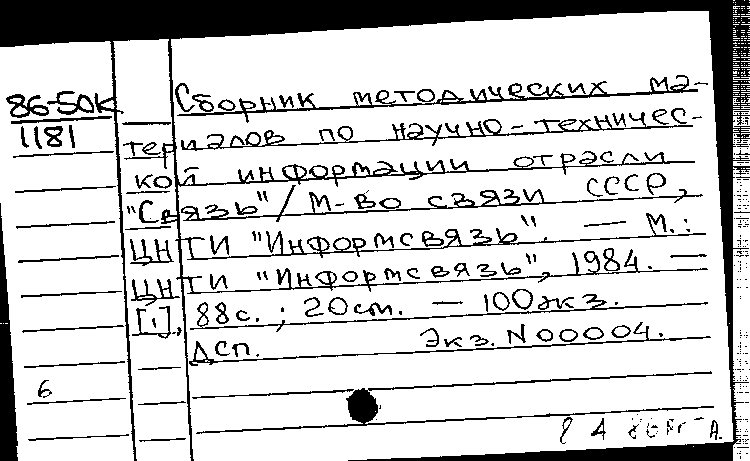 86-50К
1181
Сборник методических ма-
териалов по научно-техничес-
кой информации отрасли
"Связь" / М-во связи СССР,
ЦНТИ "Информсвязь". — М.:
ЦНТИ "Информсвязь", 1984. —
[1], 88с. ; 20см. — 100экз.
ДСП. Экз. N 00004.
6